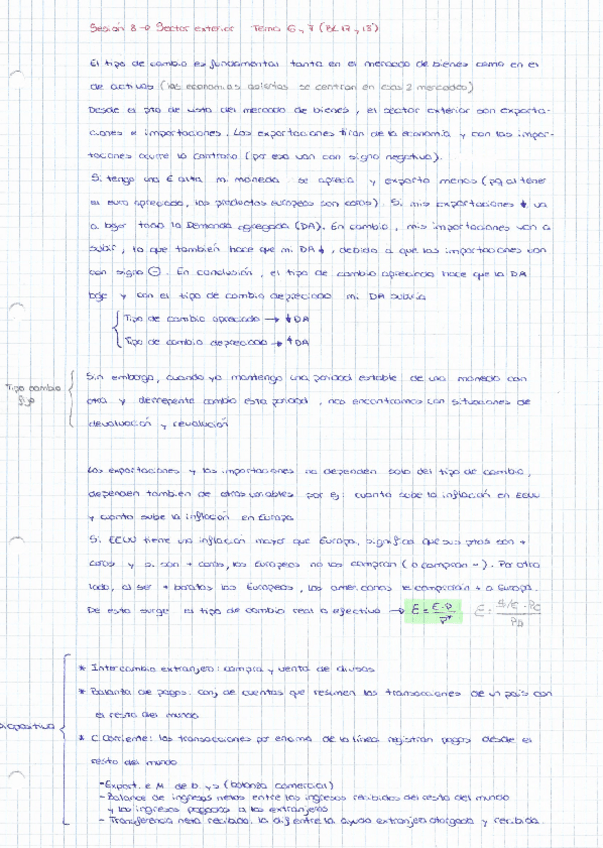 Sesión 8 → Sector exterior Tema 6 y 7 (BL 17, 18)
El tipo de cambio es fundamental tanto en el mercado de bienes como en el
de activos (las economías abiertas se centran en esos 2 mercados)
Desde el pto de vista del mercado de bienes, el sector exterior son exporta-
ciones e importaciones. Las exportaciones tiran de la economía y con las impor-
taciones ocurre lo contrario (por eso van con signo negativo).
Si tengo una E alta mi moneda se aprecia y exporta menos (pq al tener
el euro apreciado, los productos europeos son caros). Si mis exportaciones ↓ va
a bajar toda la Demanda agregada (DA). En cambio, mis importaciones van a
subir, lo que también hace que mi DA ↓, debido a que las importaciones van
con signo ⊖. En conclusión, el tipo de cambio apreciado hace que la DA
baje y con el tipo de cambio depreciado mi DA subiría
Tipo de cambio apreciado → ↓ DA
Tipo de cambio depreciado → ↑ DA
Tipo cambio
fijo
Sin embargo, cuando yo mantengo una paridad estable de una moneda con
otra y derrepente cambio esta paridad, nos encontramos con situaciones de
devaluación y revaluación
Las exportaciones y las importaciones no dependen solo del tipo de cambio,
dependen también de otras variables por ej: cuanto sube la inflación en EEUU
y cuánto sube la inflación en Europa
Si EEUU tiene una inflación mayor que Europa, significa que sus ptos son +
caros y si son + caros, los europeos no los compran (o compran -). Por otro
lado, al ser + baratos los Europeos, los americanos le comprarán + a Europa.
De esto surge el tipo de cambio real o efectivo → E = E·P / P*
Diapositiva
* Intercambio extranjero: compra y venta de divisas
* Balanza de pagos: conj de cuentas que resumen las transacciones de un país con
el resto del mundo
* C. Corriente: las transacciones por encima de la línea registran pagos desde el
resto del mundo
- Export. e M de b. y s (balanza comercial)
- Balance de ingresos netos entre los ingresos recibidos del resto del mundo
y los ingresos pagados a los extranjeros
- Transferencia neta recibida: la dif entre la ayuda extranjera otorgada y recibida.